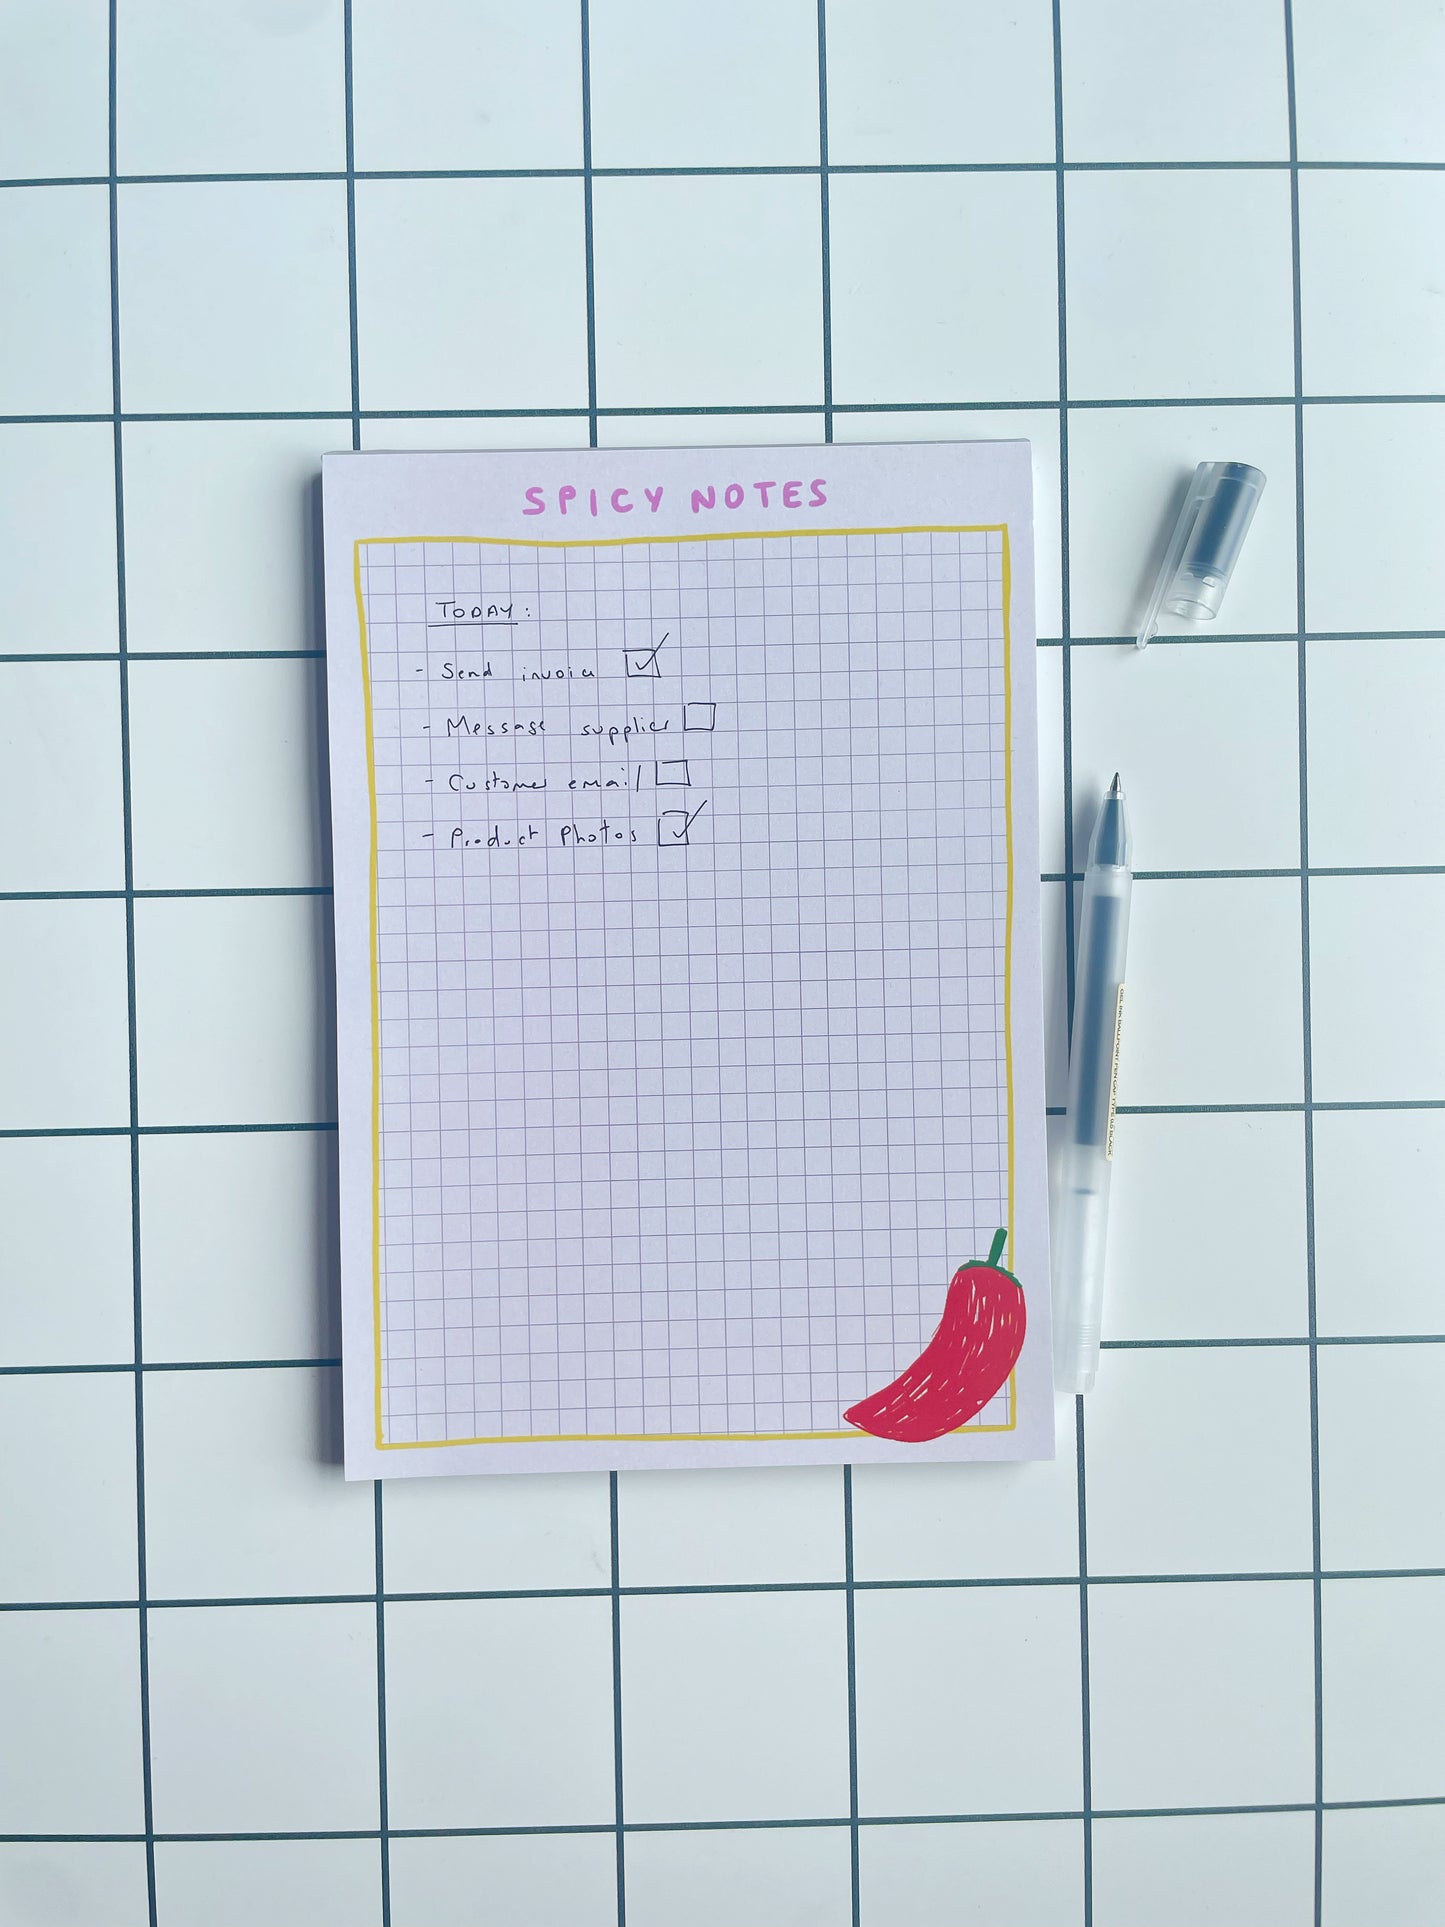 SPICY NOTES
TODAY:
- Send invoice
- Message supplier
- Customer email
- Product Photos
GEL INK BALLPOINT PEN CAP TYPE 0.5 BLACK